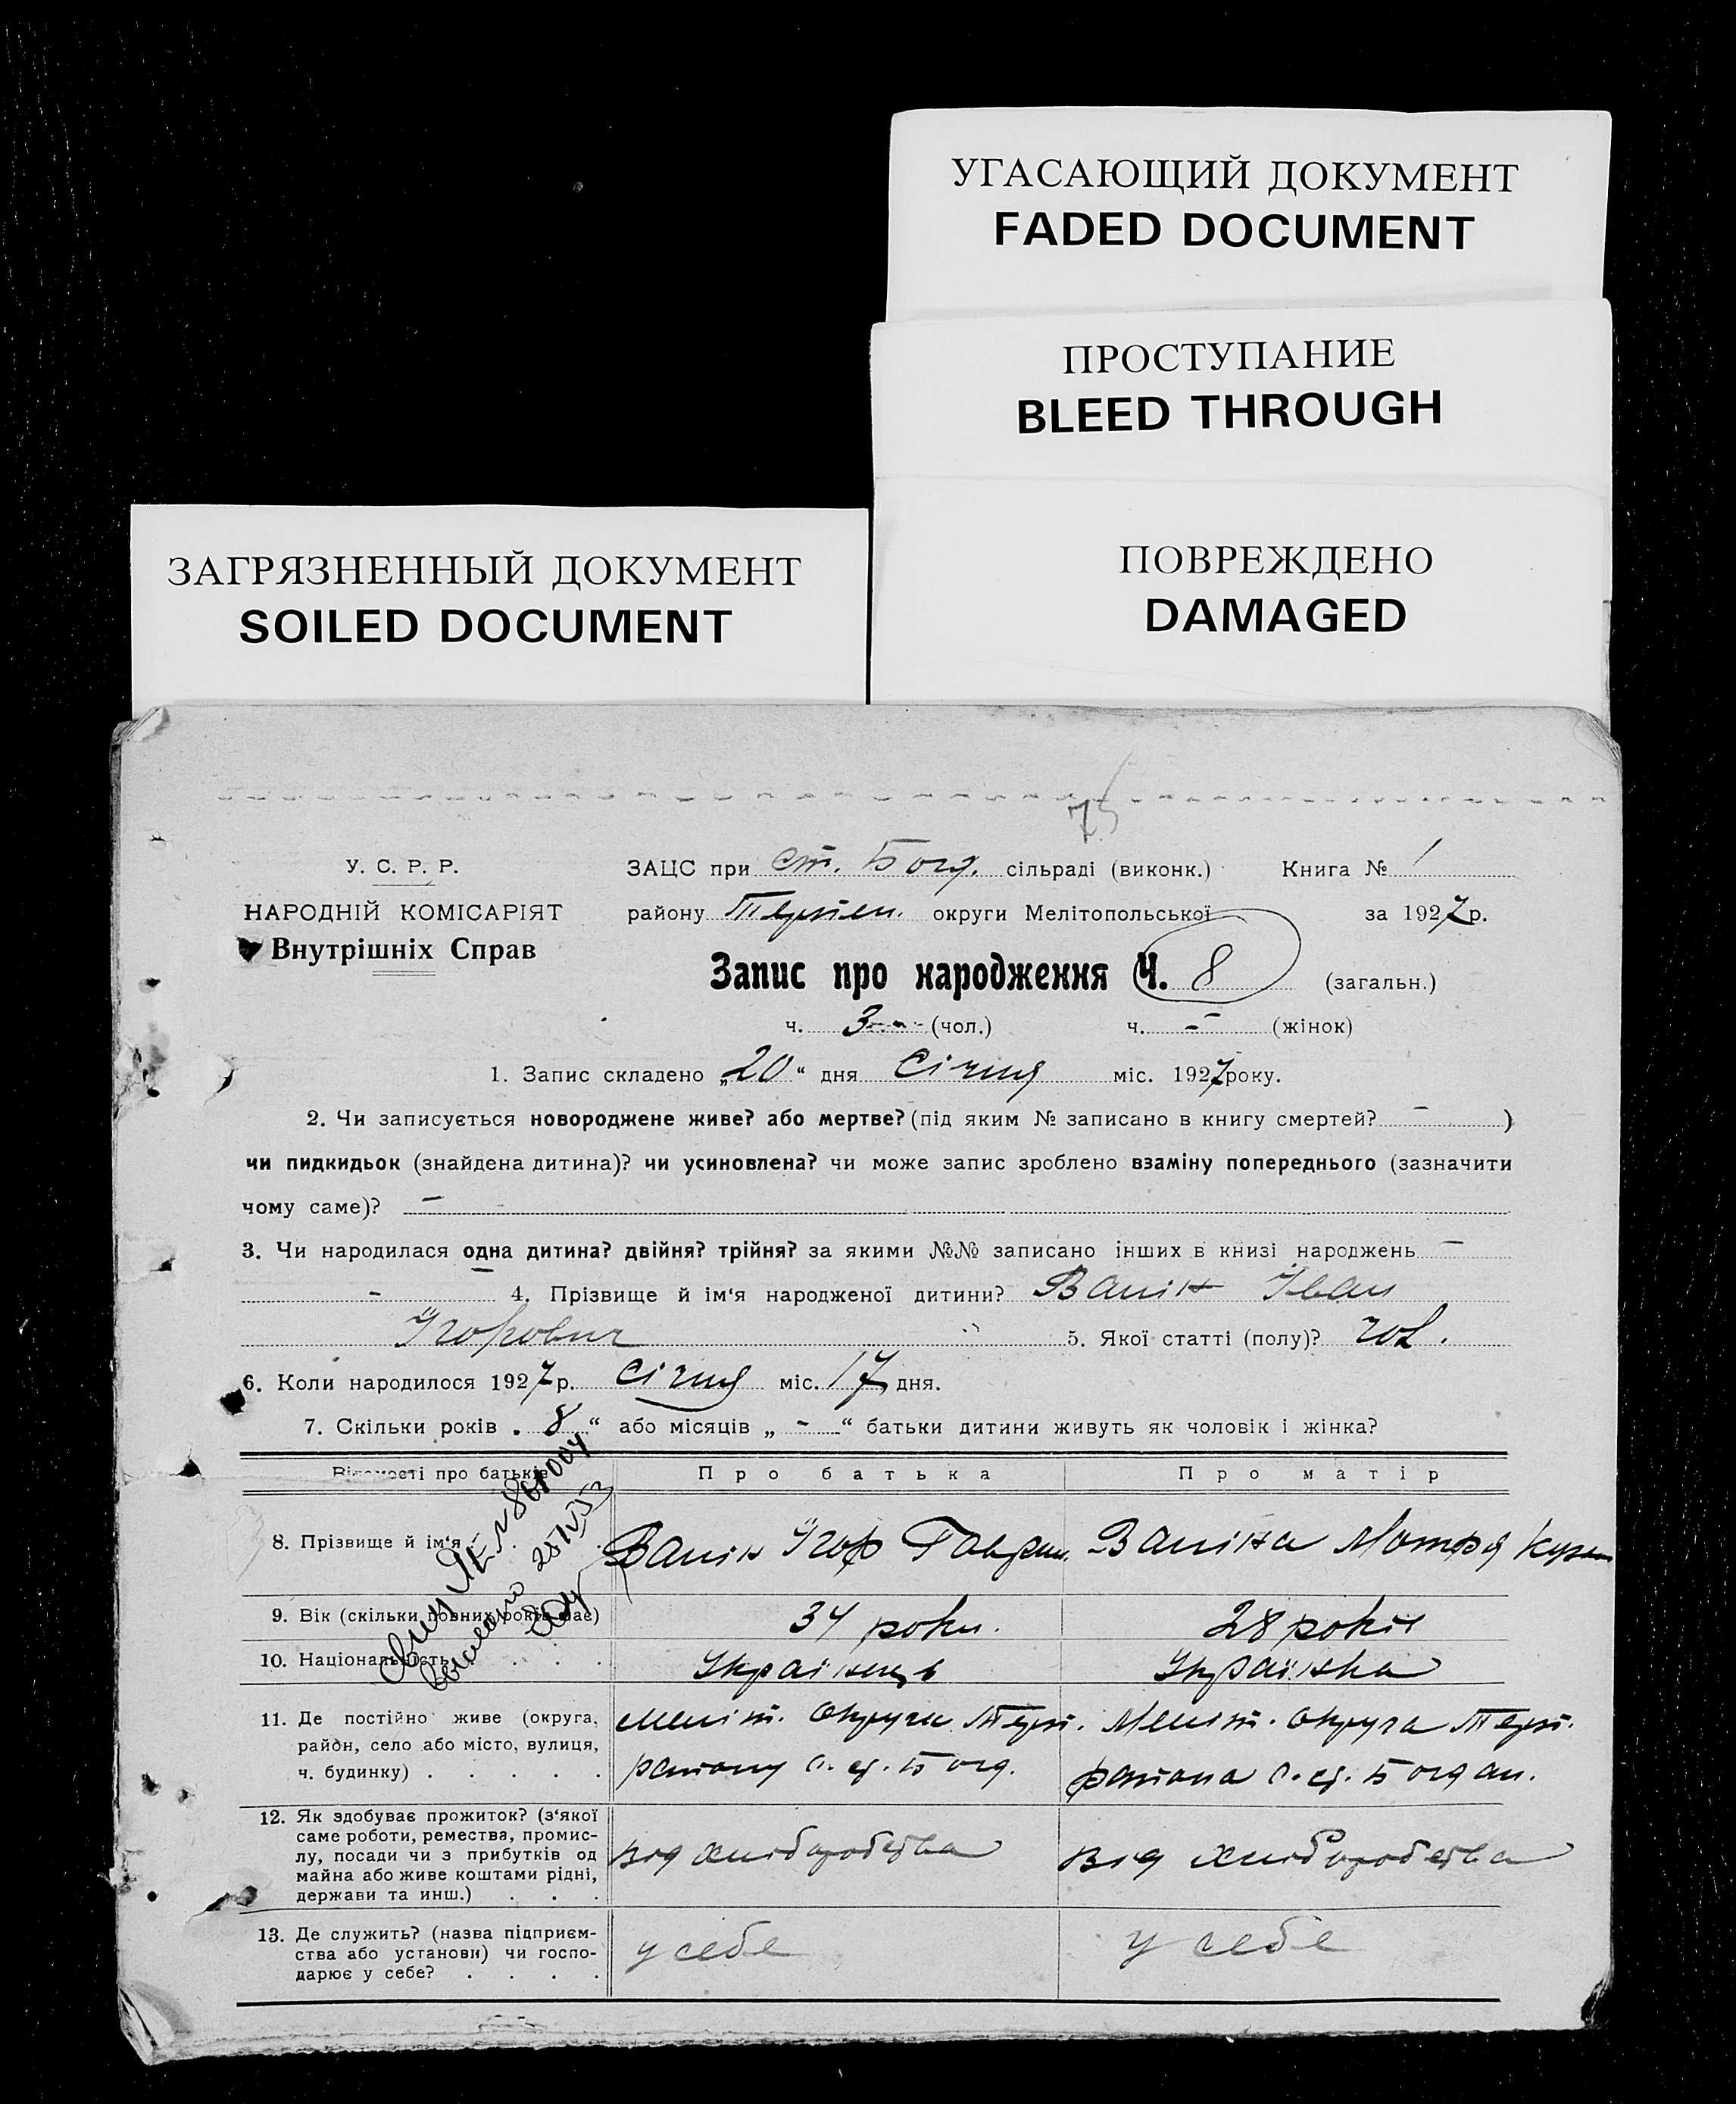 УГАСАЮЩИЙ ДОКУМЕНТ
FADED DOCUMENT
ПРОСТУПАНИЕ
BLEED THROUGH
ЗАГРЯЗНЕННЫЙ ДОКУМЕНТ
SOILED DOCUMENT
ПОВРЕЖДЕНО
DAMAGED
75
У. С. Р. Р.
НАРОДНІЙ КОМІСАРІЯТ
Внутрішніх Справ
ЗАЦС при Ст. Богд. сільраді (виконк.) Книга № 1
району Терпен. округи Мелітопольської за 1927 р.
Запис про народження Ч. 8 (загальн.)
ч. 3 (чол.) ч. - (жінок)
1. Запис складено „20“ дня Січня міс. 1927 року.
2. Чи записується новороджене живе? або мертве? (під яким № записано в книгу смертей? - )
чи пидкидьок (знайдена дитина)? чи усиновлена? чи може запис зроблено взаміну попереднього (зазначити
чому саме)? -
3. Чи народилася одна дитина? двійня? трійня? за якими №№ записано інших в книзі народжень -
- 4. Прізвище й ім'я народженої дитини? Ванін Іван
Ігорович 5. Якої статті (полу)? чол.
6. Коли народилося 1927 р. січня міс. 17 дня.
7. Скільки років „8“ або місяців „-“ батьки дитини живуть як чоловік і жінка?
Відомості про батьків Про батька Про матір
8. Прізвище й ім'я Ванін Ігор Гаврил. Ваніна Мотря
9. Вік (скільки повних років має) 34 роки. 28 років
10. Національність Українець Українка
11. Де постійно живе (округа, район, село або місто, вулиця, ч. будинку)
Меліт. округи Терп. району с. ст. Богд.
Меліт. округа Терп. района с. ст. Богдан.
12. Як здобуває прожиток? (з'якої саме роботи, ремества, промислу, посади чи з прибутків од майна або живе коштами рідні, держави та инш.)
від хліборобства
від хліборобства
13. Де служить? (назва підприємства або установи) чи господарює у себе?
у себе
у себе